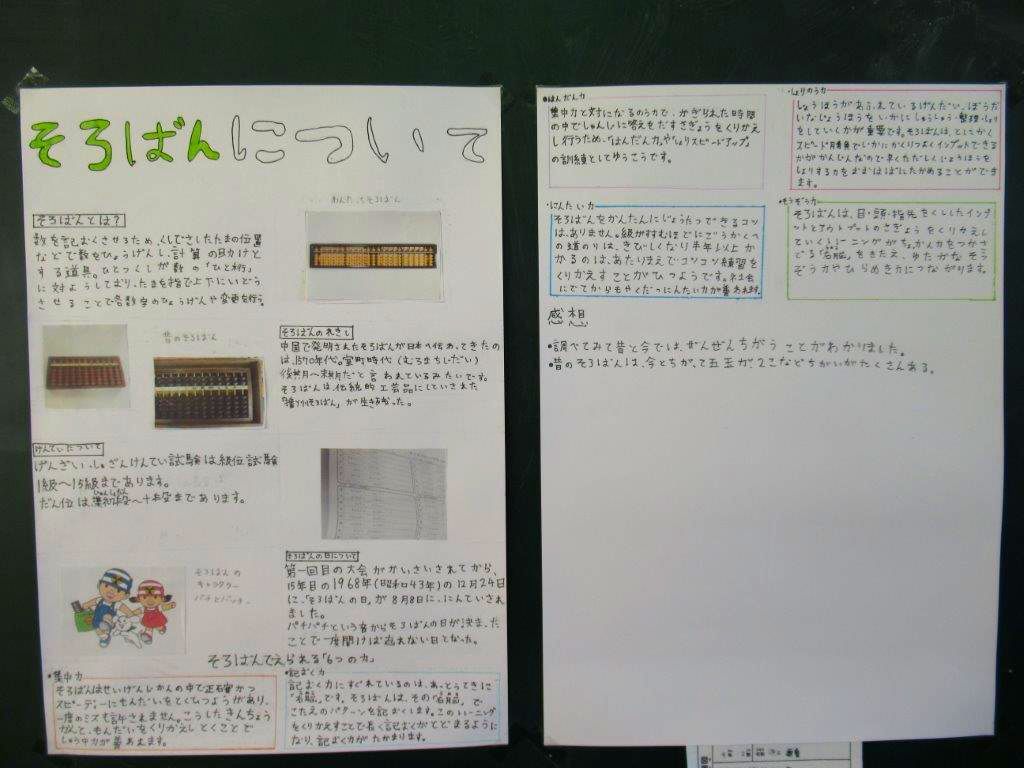 そろばんについて
そろばんとは？
数を記おくさせるため、くしでさしたたまの位置
などで数をひょうげんし、計算の助けと
する道具。ひとつくしが数の「ひと桁」
に対ようしており、たまを指で上下にいどう
させることで各数字のひょうげんや変更を行う。
昔のそろばん
そろばんのれきし
中国で発明されたそろばんが日本へ伝わってきたの
は、1570年代。室町時代（むろまちじだい）
後期〜末期だと言われているみたいです。
そろばんは伝統的工芸品にしていされた
けんていについて
げんざい、しゅざんけんてい試験は級位試験
1級〜15級まであります。
だん位は、準初段〜十段まであります。
そろばんの日について
第一回目の大会がかいさいされてから
15年目の1968年(昭和43年)の12月24日
に、「そろばんの日」が8月8日に、にんていされ
ました。
パチパチという音からそろばんの日が決まった
ことで一度聞けば忘れない日となった。
そろばんの
キャラクター
パチとパッチー
そろばんでえられる「6つの力」
・集中力
そろばんはせいげんじかんの中で正確かつ
スピーディーにもんだいをとくひつようがあり、
一度のミスも許されません。こうしたきんちょう
かんと、もんだいをくりかえしとくことで
しゅう中力が養われます。
・記おく力
記おく力にすぐれているのは、あっとうてきに
「右脳」です。そろばんは、その「右脳」で
こたえのパターンを記おくします。このトレーニング
をくりかえすことで長く記おくがとどまるように
なり、記おく力がたかまります。
・はんだん力
集中力と対になるのう力で、かぎられた時間
の中でしゅんじに答えをだすさぎょうをくりかえ
し行うため、「はんだん力」や「しょりスピードアップ」
の訓練としてゆうこうです。
・しょりのう力
じょうほうがあふれているげんだい、ぼうだ
いなじょうほうをいかにしゅうしゅう・整理・しょり
をしていくかが重要です。そろばんは、とにかく
スピード勝負でいかにかくりつよくインプットできる
かがかんじんなので早くただしくじょうほうを
しょりする力をおおはばにたかめることができ
ます。
・にんたい力
そろばんをかんたんにじょうたつできるコツ
は、ありません。級がすすむほどにごうかくへ
の道のりは、きびしくなり半年以上かか
かるのは、あたりまえでコツコツ練習を
くりかえすことがひつようです。社会
にでてからもやくだつにんたい力が養われます。
・そうぞう力
そろばんは、目・頭・指先をくしした
インプットとアウトプットのさぎょうをくりかえし
ていくトレーニングがちょっかん力をつかさ
どる「右脳」をきたえ、ゆたかなそう
ぞう力やひらめき力につながります。
感想
・調べてみて昔と今では、ぜんぜんちがうことがわかりました。
・昔のそろばんは、今とちがって五玉が2こなどちがいがたくさんある。